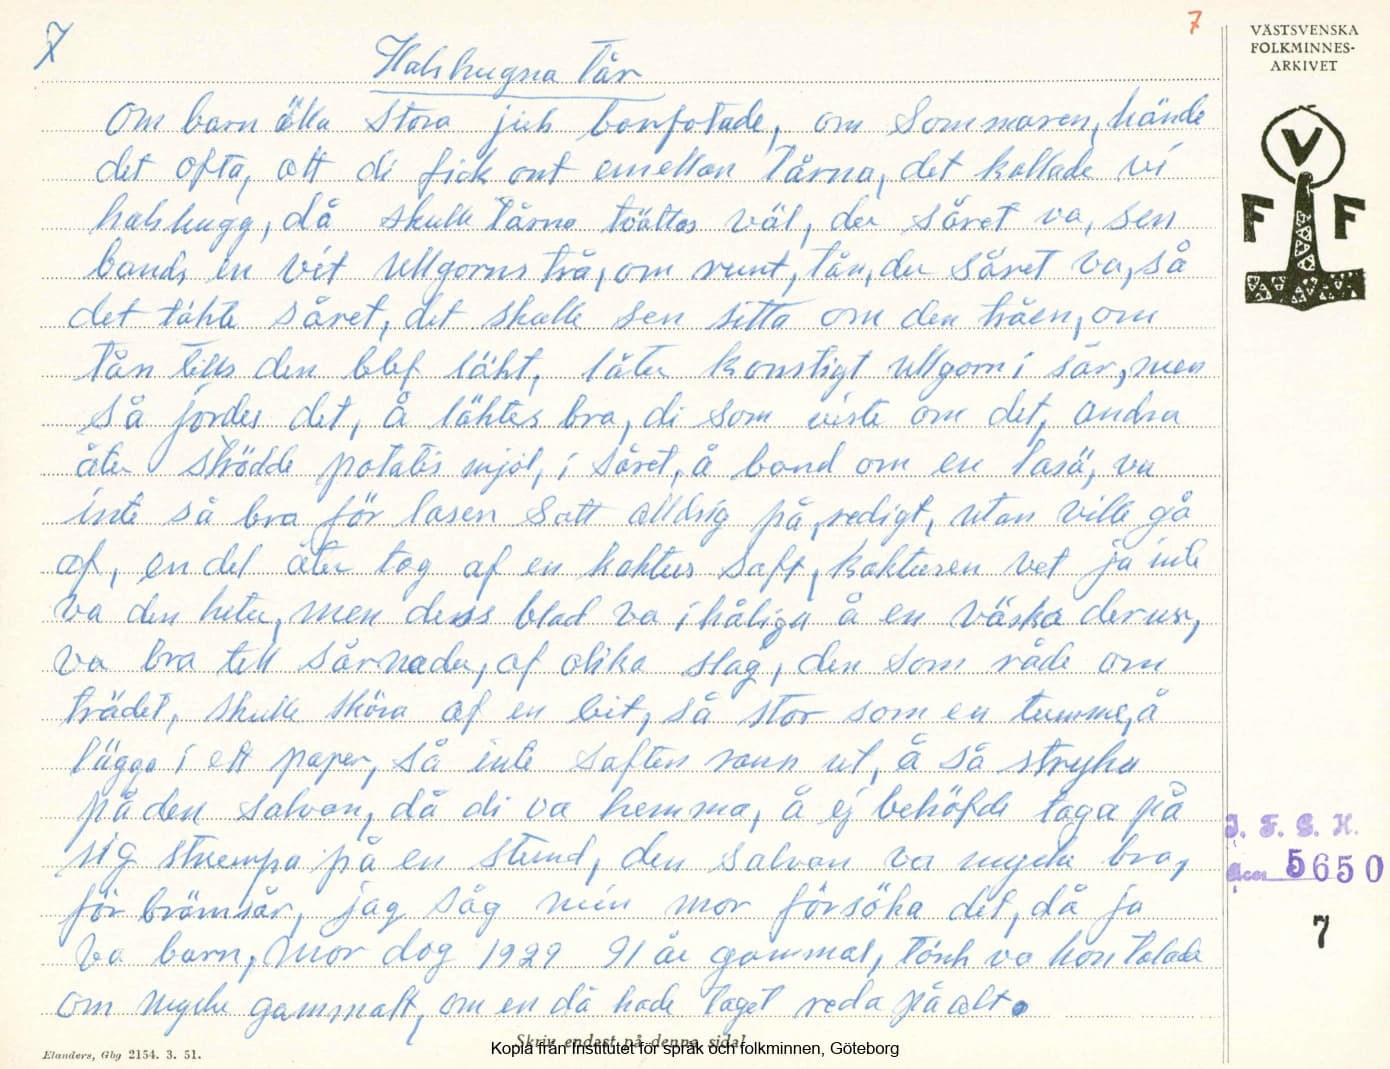 7
7
VÄSTSVENSKA
FOLKMINNES-
ARKIVET
V
F F
Halshugna tår
Om barn äka stora jick barfotade, om Sommaren, hände
det ofta, att di fick ont emellan Tårna, det kallade vi
halshugg, då skulle Tårna tvättas väl, der såret va, sen
bands en vit Ullgarns trå, om runt, tån, der såret va, så
det täkte såret, det skulle sen sitta om den tråen, om
tån tills den blef läkt, låter konstigt Ullgarn i sår, men
så jordes det, å läktes bra, di som viste om det, andra
åter strödde potatis mjöl, i såret, å band om en lasa, va
inte så bra för lasen Satt alldrig på, redigt, utan ville gå
af, en del åter tog af en kaktus saft, kaktusen vet ja inte
va den heter, men dess blad va ihåliga å en väska derur,
va bra till sårnader, af olika slag, den som råde om
trädet, skulle sköra af en bit, så stor som en tumme, å
lägga i ett paper, så inte saften rann ut, å så stryka
på den salvan, då di va hemma, å ej behöfde taga på
sig strumpa på en stund, den salvan va mycke bra,
för brämsår, jag såg min mor försöka det, då ja
va barn, Mor dog 1929 91 år gammal, tänk va hon talade
om mycke gammalt, om en då hade taget reda på alt.
J. F. G. H.
Acc 5650
7
Skriv endast på denna sida!
Kopia från Institutet för språk och folkminnen, Göteborg
Elanders, Gbg 2154. 3. 51.